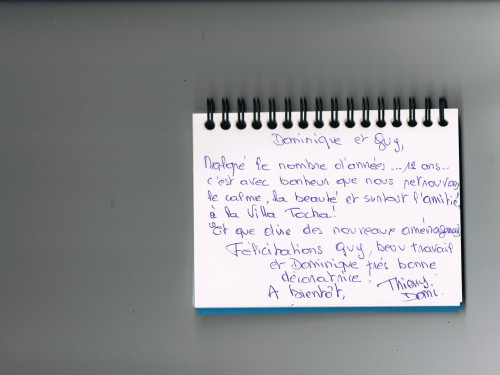 Dominique et Guy,
Malgré le nombre d'années... 12 ans...
c'est avec bonheur que nous retrouvons
le calme, la beauté et surtout l'amitié
à la Villa Tocha!
Et que dire des nouveaux aménagements
Félicitations Guy, beau travail
et Dominique très bonne
décoratrice!
A bientôt, Thierry.
Domi.